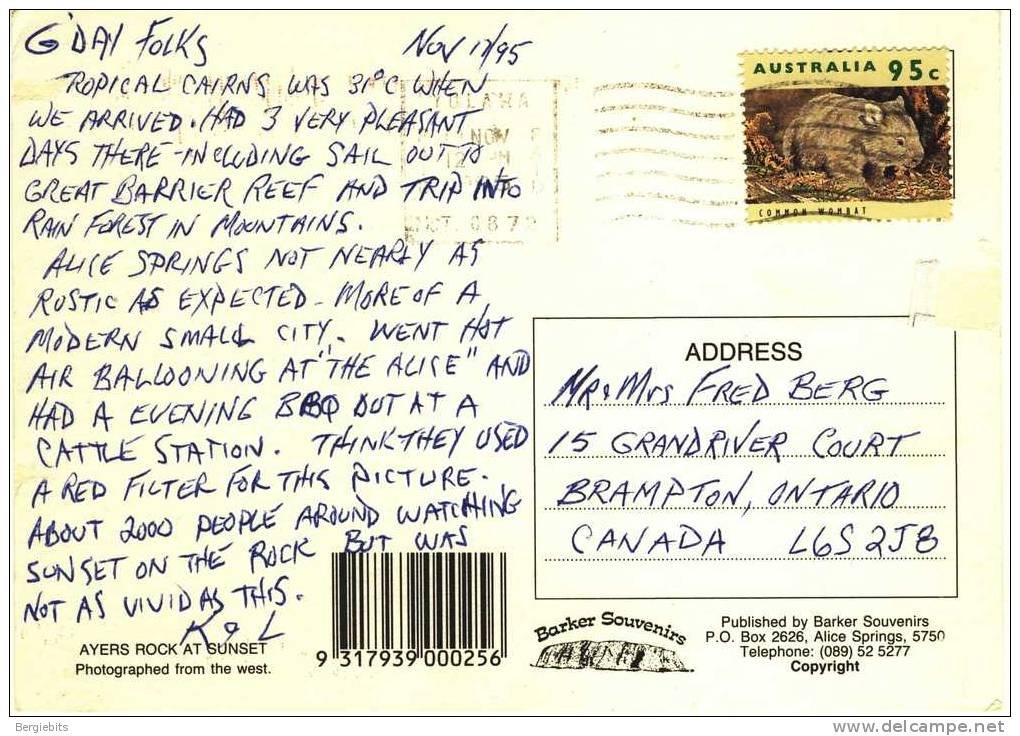 G'DAY FOLKS
TROPICAL CAIRNS WAS 31°C WHEN
WE ARRIVED. HAD 3 VERY PLEASANT
DAYS THERE - INCLUDING SAIL OUT TO
GREAT BARRIER REEF AND TRIP INTO
RAIN FOREST IN MOUNTAINS.
ALICE SPRINGS NOT NEARLY AS
RUSTIC AS EXPECTED - MORE OF A
MODERN SMALL CITY. WENT HOT
AIR BALLOONING AT "THE ALICE" AND
HAD A EVENING BBQ OUT AT A
CATTLE STATION. THINK THEY USED
A RED FILTER FOR THIS PICTURE.
ABOUT 2000 PEOPLE AROUND WATCHING
SUNSET ON THE ROCK BUT WAS
NOT AS VIVID AS THIS.
K & L
AYERS ROCK AT SUNSET
Photographed from the west.
9 317939 000256
YULARA
NOV
12 PM
N.T. 0872
AUSTRALIA 95c
COMMON WOMBAT
ADDRESS
MR & MRS FRED BERG
15 GRANDRIVER COURT
BRAMPTON, ONTARIO
CANADA L6S 2J8
Barker Souvenirs
Published by Barker Souvenirs
P.O. Box 2626, Alice Springs, 5750
Telephone: (089) 52 5277
Copyright
Bergiebits
delcampe.net